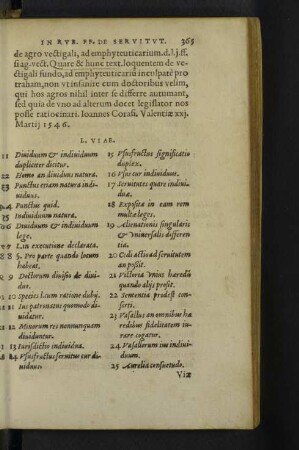 IN RVB. FF. DE SERVITVT. 365
de agro vectigali, ad emphyteuticarium.d.l.j.ff.
si ag.vect. Quare & hunc text. loquentem de ve-
ctigali fundo, ad emphyteuticariū inculpatè pro
traham, non vt insanire cum doctoribus velim,
qui hos agros nihil inter se differre autumant,
sed quia de vno ad alterum docet legislator nos
posse ratiocinari. Ioannes Coras. Valentiæ xxj.
Martij 1546.
L. VIAE.
Diuiduum & indiuiduum
dupliciter dicitur.
22 Homo an diuiduus natura.
Punctus etiam natura indi-
uiduus.
Punctus quid.
Indiuiduum natura.
Diuiduum & indiuiduum
lege.
L. in executione declarata.
5. Pro parte quando locum
habeat.
9 Doctorum diuisio de diui-
duo.
10 Species ilium ratione dubij.
11 Ius patronatus quomodo di-
uidatur.
12 Minorem res nonnunquam
diuiduntur.
13 Iurisdictio indiuidua.
14 Vsusfructus seruitus cur di-
uiduus.
15 Vsusfructus significatio
duplex.
16 Vsus cur indiuiduus.
17 Seruitutes quare indiui-
duæ.
18 Exposita in eam rem
multæ leges.
19 Alienationis singularis
& vniuersalis differen
tia.
20 Cedi actio ad seruitutem
an possit.
21 Victoria vnius hæredū
quando alijs prosit.
22 Sententia prodest con-
sorti.
23 Vasallus an omnibus hæ
redibus fidelitatem iu-
rare cogatur.
24 Vasallorum ius indiui-
duum.
25 Aurelia consuetudo.
Viæ